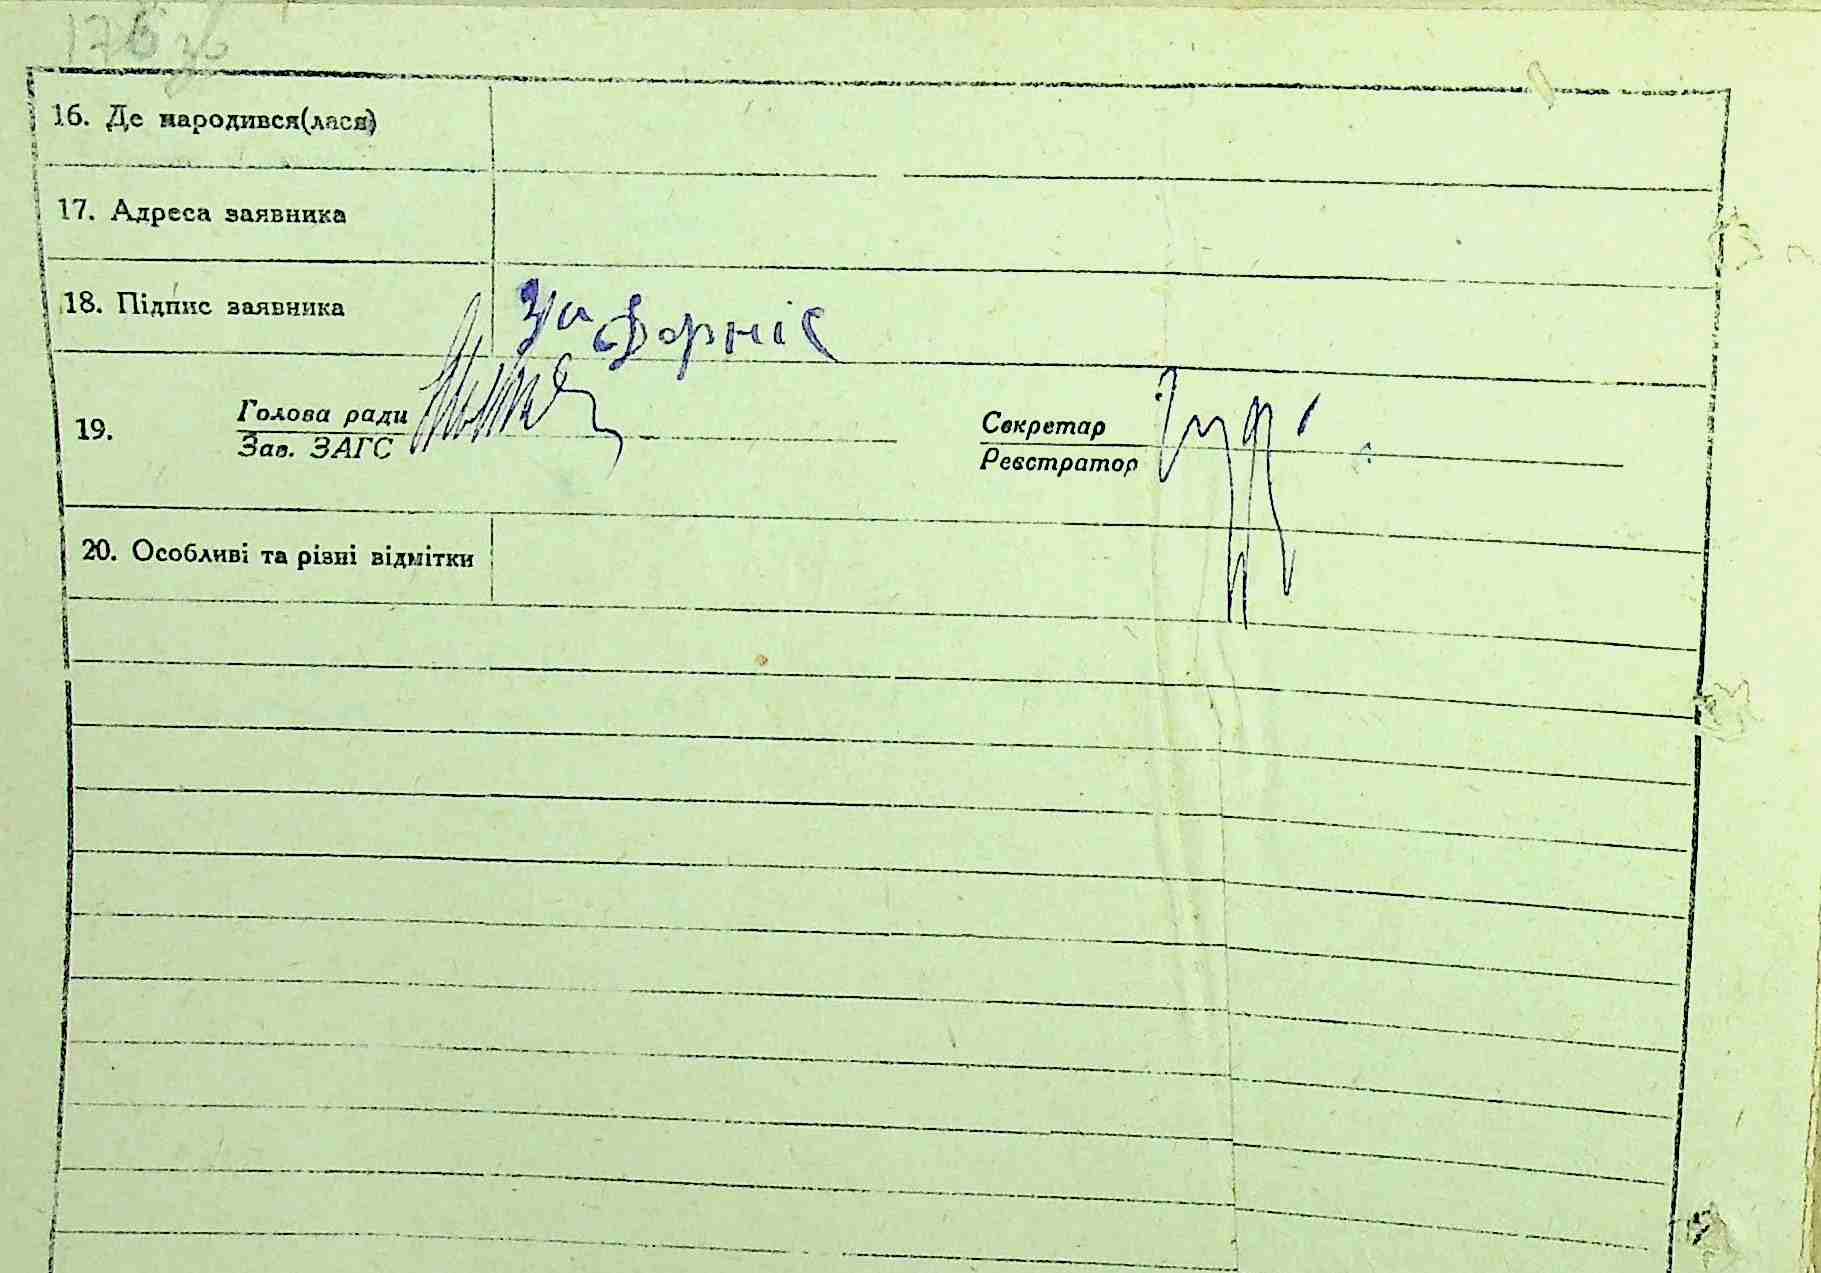 176 зв
16. Де народився(лася)
17. Адреса заявника
18. Підпис заявника
за Дорніс
19. Голова ради
Зав. ЗАГС
Секретар
Реєстратор
20. Особливі та різні відмітки